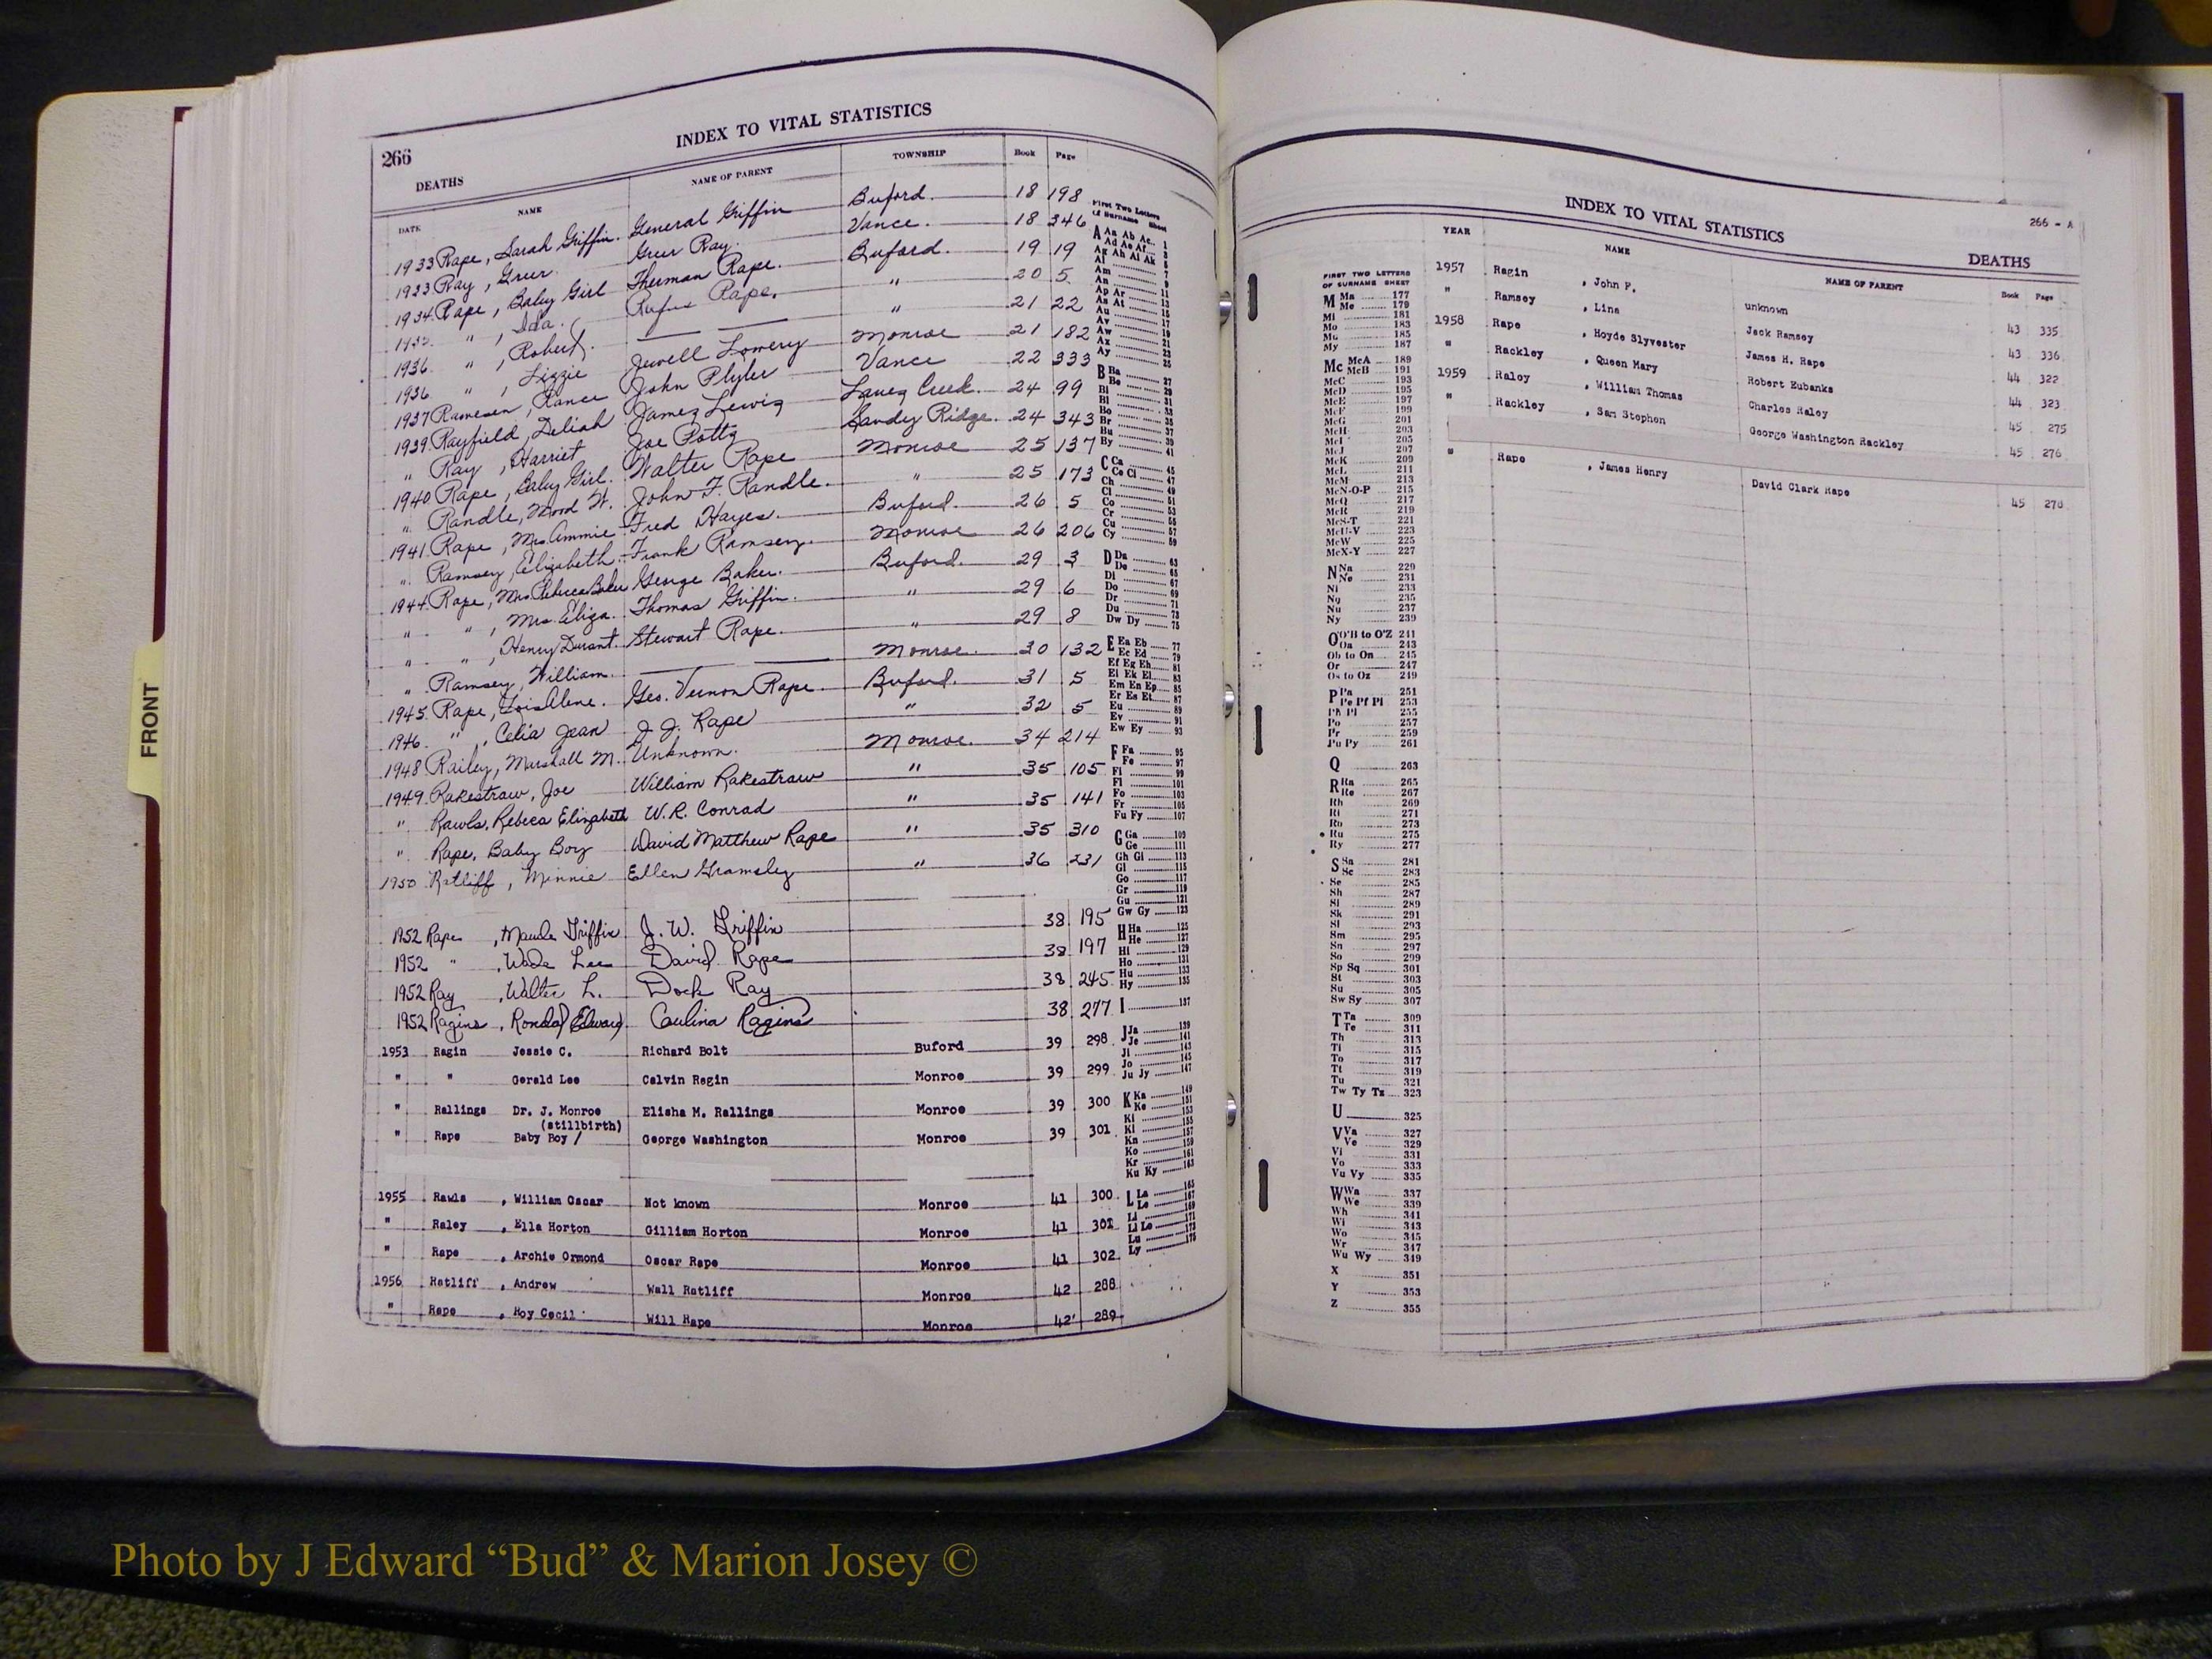 266
INDEX TO VITAL STATISTICS
DEATHS
DATE NAME NAME OF PARENT TOWNSHIP Book Page
1933 Rape, Sarah Griffin. General Griffin Buford. 18 198
1933 Ray, Greer. Greer Ray. Vance. 18 346
1934 Rape, Baby Girl Therman Rape. Buford. 19 19
" , Ida. Rufus Rape. " 20 5
1936 " , Robert. " 21 22
1936 " , Lizzie Jewell Lowery Monroe 21 182
1937 Rance John Plyler Vance 22 333
1939 Rayfield, Deliah James Lewis Lanes Creek. 24 99
" Ray, Harriet Joe Potts Sandy Ridge. 24 343
1940 Rape, Baby Girl. Walter Rape Monroe 25 137
" Randle, Wood W. John F. Randle. " 25 173
1941 Rape, Mrs. Ammie Fred Hayes. Buford. 26 5
" Ramsey, Elizabeth. Frank Ramsey. Monroe 26 206
1944 Rape, Mrs. Rebecca Baker George Baker. Buford. 29 3
" " , Mrs. Eliza. Thomas Griffin. " 29 6
" " , Henry Durant. Stewart Rape. " 29 8
" Ramsey, William. Monroe. 30 132
1945 Rape, Lois Alene. Geo. Vernon Rape. Buford. 31 5
1946 " , Celia Jean J. J. Rape " 32 5
1948 Railey, Marshall M. Unknown. Monroe. 34 214
1949 Rakestraw, Joe William Rakestraw " 35 105
" Rawls, Rebeca Elizabeth W. R. Conrad " 35 141
" Rape, Baby Boy David Matthew Rape " 35 310
1950 Ratliff, Minnie Ellen Gramsley " 36 231
1952 Rape , Maude Griffin J. W. Griffin 38 195
1952 " , Wade Lee David Rape 38 197
1952 Ray , Walter L. Dock Ray 38 245
1952 Ragins , Ronda Edward Caulina Ragins 38 277
1953 Ragin Jessie C. Richard Bolt Buford 39 298
" " Gerald Lee Calvin Ragin Monroe 39 299
" Rallings Dr. J. Monroe Elisha M. Rallings Monroe 39 300
(stillbirth)
" Rape Baby Boy / George Washington Monroe 39 301
1955 Rawls , William Oscar Not known Monroe 41 300
" Raley , Ella Horton Gilliam Horton Monroe 41 301
" Rape , Archie Ormond Oscar Rape Monroe 41 302
1956 Ratliff , Andrew Wall Ratliff Monroe 42 288
" Rape , Hoy Cecil Will Rape Monroe 42 289
First Two Letters
of Surname Sheet
A Aa Ab Ac 1
Ad Ae Af 3
Ag Ah Ai Ak 5
Al 7
Am 9
An 11
Ap Ar 13
As At 15
Au 17
Av 19
Aw 21
Ax 23
Ay 25
B Ba 27
Be 29
Bi 31
Bl 33
Bo 35
Br 37
Bu 39
By 41
C Ca 45
Ce Ci 47
Ch 49
Cl 51
Co 53
Cr 55
Cu 57
Cy 59
D Da 63
De 65
Di 67
Do 69
Dr 71
Du 73
Dw Dy 75
E Ea Eb 77
Ec Ed 79
Ef Eg Eh 81
Ei Ek El 83
Em En Ep 85
Er Es Et 87
Eu 89
Ev 91
Ew Ey 93
F Fa 95
Fe 97
Fi 99
Fl 101
Fo 103
Fr 105
Fu Fy 107
G Ga 109
Ge 111
Gh Gi 113
Gl 115
Go 117
Gr 119
Gu 121
Gw Gy 123
H Ha 125
He 127
Hi 129
Ho 131
Hu 133
Hy 135
I 137
J Ja 139
Je 141
Ji 143
Jo 145
Ju Jy 147
K Ka 149
Ke 151
Ki 153
Kl 155
Kn 157
Ko 159
Kr 161
Ku Ky 163
L La 165
Le 167
Li 169
Ll Lo 171
Lu 173
Ly 175
266 - A
INDEX TO VITAL STATISTICS
DEATHS
YEAR NAME NAME OF PARENT Book Page
1957 Ragin , John P. unknown 43 335
" Ramsey , Lina Jack Ramsey 43 336
1958 Rape , Hoyde Slyvester James H. Rape 44 322
" Rackley , Queen Mary Robert Eubanks 44 323
1959 Raley , William Thomas Charles Raley 45 275
" Rackley , Sam Stephen George Washington Rackley 45 276
" Rape , James Henry David Clark Rape 45 278
FIRST TWO LETTERS
OF SURNAME SHEET
M Ma 177
Me 179
Mi 181
Mo 183
Mu 185
My 187
Mc McA 189
McB 191
McC 193
McD 195
McE 197
McF 199
McG 201
McH 203
McI 205
McJ 207
McK 209
McL 211
McM 213
McN-O-P 215
McQ 217
McR 219
McS-T 221
McU-V 223
McW 225
McX-Y 227
N Na 229
Ne 231
Ni 233
No 235
Nu 237
Ny 239
O O'B to O'Z 241
Oa 243
Ob to On 245
Or 247
Os to Oz 249
P Pa 251
Pe Pf Pl 253
Ph Pl 255
Po 257
Pr 259
Pu Py 261
Q 263
R Ra 265
Re 267
Rh 269
Ri 271
Ro 273
Ru 275
Ry 277
S Sa 281
Sc 283
Se 285
Sh 287
Si 289
Sk 291
Sl 293
Sm 295
Sn 297
So 299
Sp Sq 301
St 303
Su 305
Sw Sy 307
T Ta 309
Te 311
Th 313
Ti 315
To 317
Tt 319
Tu 321
Tw Ty Tz 323
U 325
V Va 327
Ve 329
Vi 331
Vo 333
Vu Vy 335
W Wa 337
We 339
Wh 341
Wi 343
Wo 345
Wr 347
Wu Wy 349
X 351
Y 353
Z 355
FRONT
Photo by J Edward “Bud” & Marion Josey ©